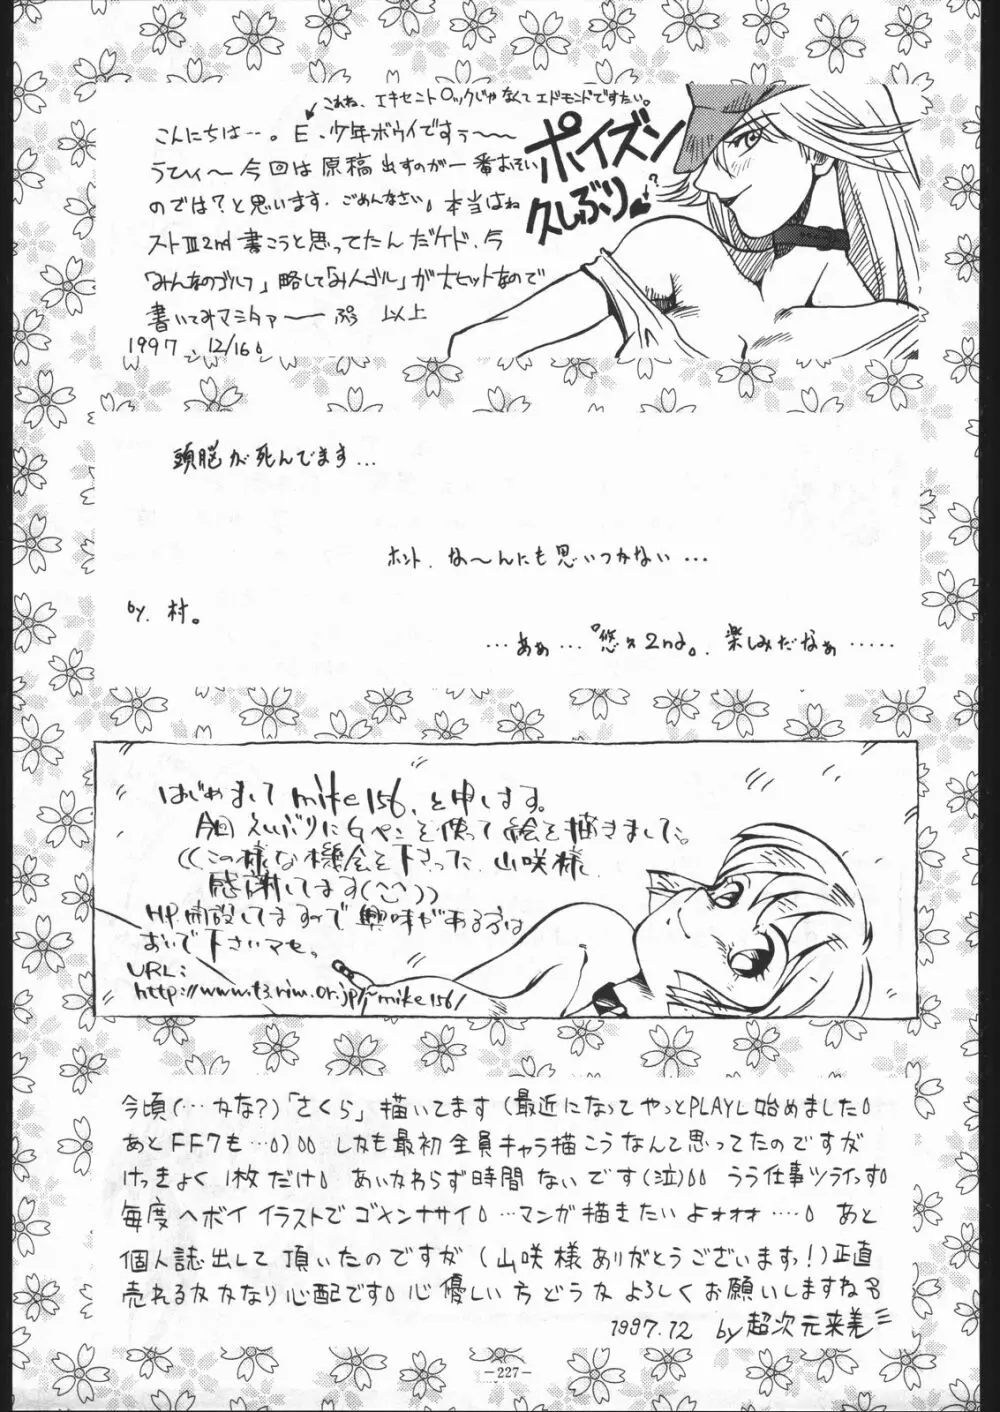 これね、エキセントロックじゃなくてエドモンドですたい。
こんにちは…。E.少年ボウイですぅ〜〜
うひぃ〜今回は原稿出すのが一番おそい
のでは?と思います.ごめんなさい。本当はね
ストⅢ2nd書こうと思ってたんだケド、今
「みんなのゴルフ」略して「みんゴル」が大ヒットなので
書いてみマシタァー― ぷぅ 以上
1997 12/16。
ポイズン
久しぶり
?
頭脳が死んでます…
ホント、な〜んにも思いつかない…
by.村。
…あぁ…『悠久2nd』。楽しみだなぁ……
はじめまして mike156,と申します。
今回えぃぶりにGペンを使って絵を描きました。
((この様な機会を下さった、山咲様、
感謝してます(^^)))
HP開設してますので興味がある方は
おいで下さいマセ。
URL:
http://www.t3.rim.or.jp/~mike156/
今頃(…カな?)「さくら」描いてます(最近になってやっとPLAYし始めました。
あとFF7も…。)。。しカも最初全員キャラ描こうなんて思ってたのですガ
けっきょく1枚だけ。あいカわらず時間ないです(泣)。。うう仕事ツライっす。
毎度ヘボイイラストでゴメンナサイ。…マンガ描きたいよォォォ……。あと
個人誌出して頂いたのですガ(山咲様ありガとうございますっ!)正直
売れるカカなり心配です。心優しい方どうカよろしくお願いしますね
1997.12 by超次元来美
-227-